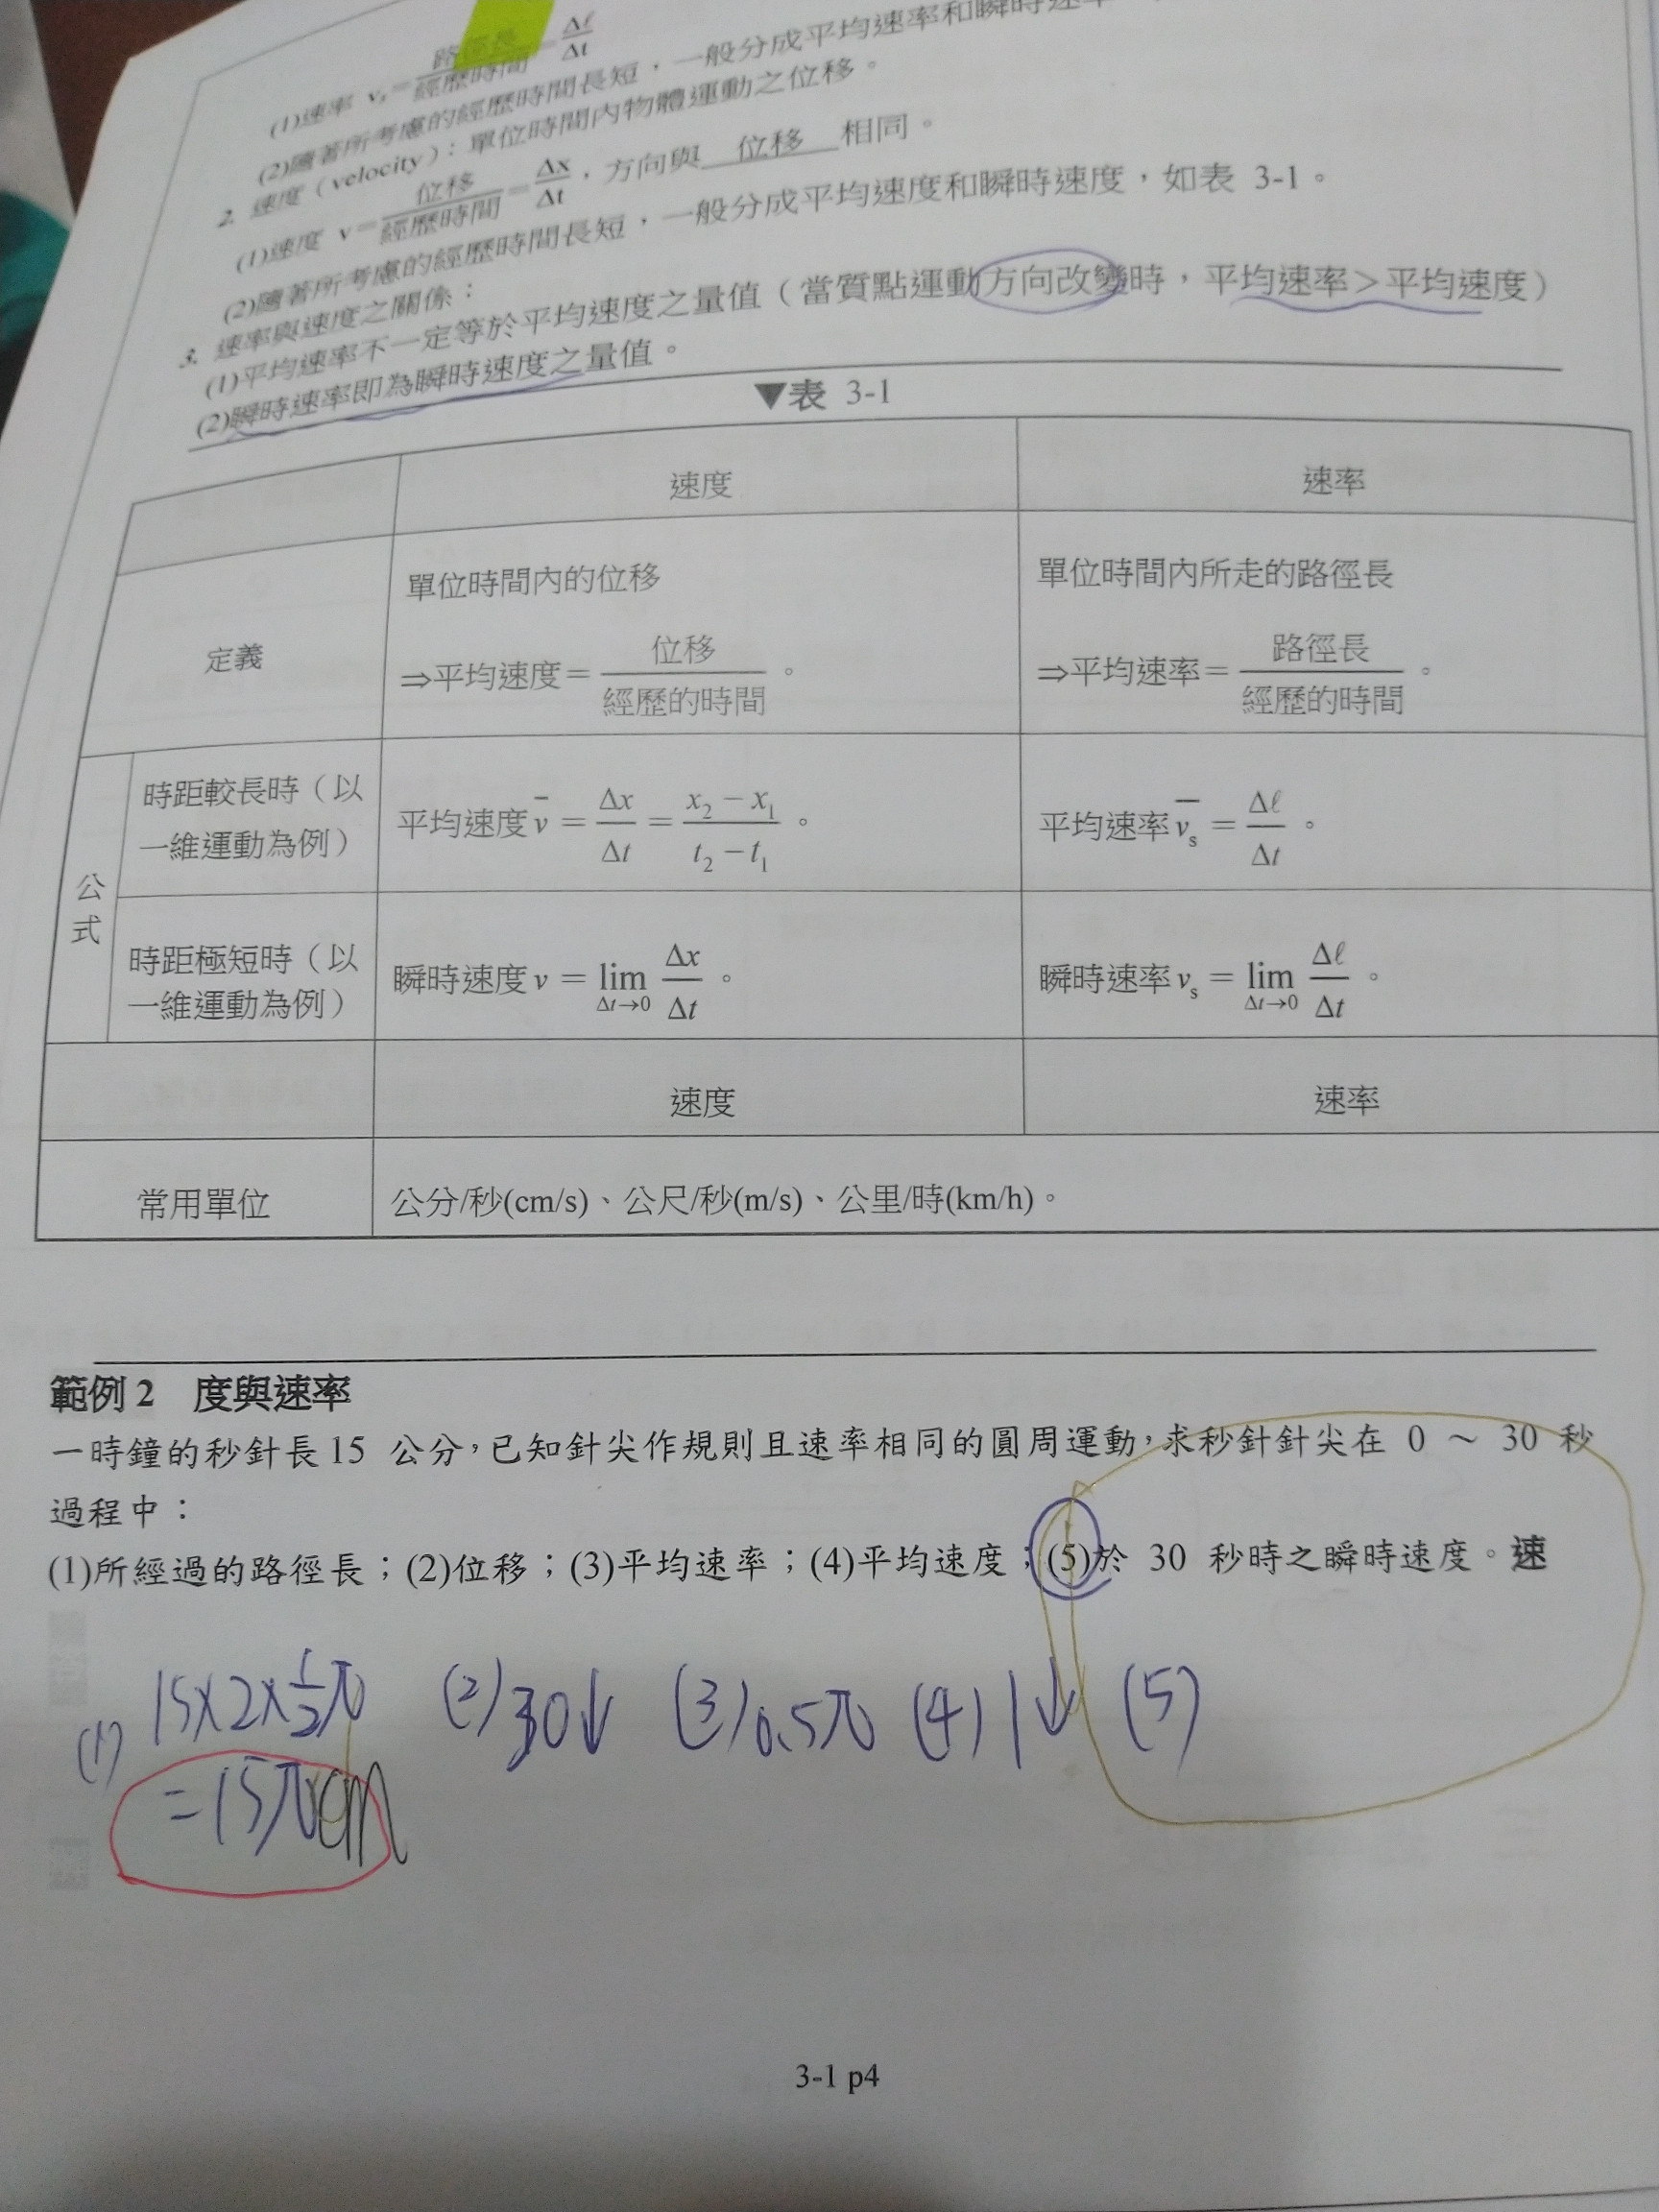 (1)速率 vs=路徑長/經歷時間=Δℓ/Δt
(2)隨著所考慮的經歷時間長短，一般分成平均速率和瞬時速率
2. 速度（velocity）：單位時間內物體運動之位移。
(1)速度 v=位移/經歷時間=Δx/Δt，方向與 位移 相同。
(2)隨著所考慮的經歷時間長短，一般分成平均速度和瞬時速度，如表 3-1。
3. 速率與速度之關係：
(1)平均速率不一定等於平均速度之量值（當質點運動方向改變時，平均速率＞平均速度）
(2)瞬時速率即為瞬時速度之量值。
▼表 3-1
速度 速率
定義
單位時間內的位移
⇒平均速度=位移/經歷的時間。
單位時間內所走的路徑長
⇒平均速率=路徑長/經歷的時間。
公式
時距較長時（以
一維運動為例）
平均速度v̄ = Δx/Δt = x₂−x₁/t₂−t₁。
平均速率v̄s = Δℓ/Δt。
時距極短時（以
一維運動為例）
瞬時速度v = lim Δt→0 Δx/Δt。
瞬時速率vs = lim Δt→0 Δℓ/Δt。
速度 速率
常用單位 公分/秒(cm/s)、公尺/秒(m/s)、公里/時(km/h)。
範例 2 度與速率
一時鐘的秒針長 15 公分，已知針尖作規則且速率相同的圓周運動，求秒針針尖在 0 ～ 30 秒
過程中：
(1)所經過的路徑長；(2)位移；(3)平均速率；(4)平均速度；(5)於 30 秒時之瞬時速度。速
(1) 15×2×1/2π (2) 30↓ (3) 0.5π (4) 1↓ (5)
=15πcm
3-1 p4